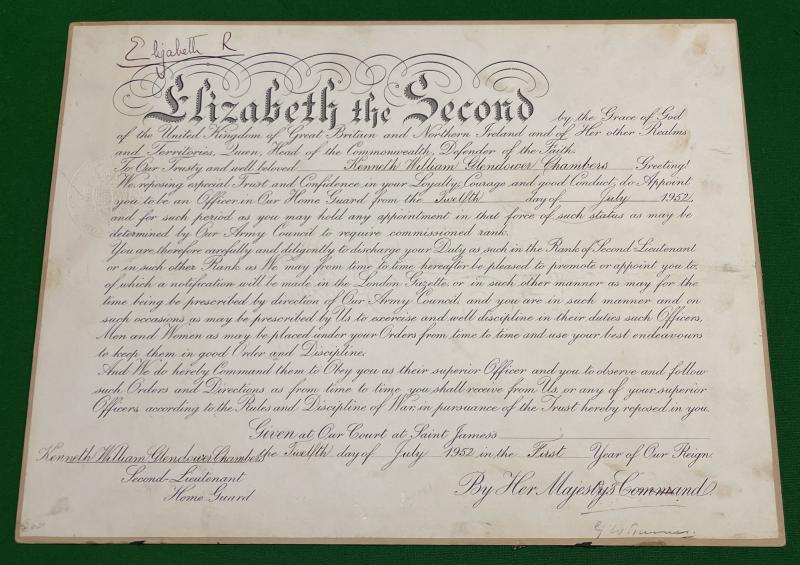 Elizabeth R
Elizabeth the Second by the Grace of God
of the United Kingdom of Great Britain and Northern Ireland and of Her other Realms
and Territories, Queen, Head of the Commonwealth, Defender of the Faith.
To Our Trusty and well beloved Kenneth William Glendower Chambers Greeting!
We, reposing especial Trust and Confidence in your Loyalty, Courage and good Conduct, do Appoint
you to be an Officer in Our Home Guard from the Twelfth day of July 1952,
and for such period as you may hold any appointment in that force of such status as may be
determined by Our Army Council to require commissioned rank.
You are therefore carefully and diligently to discharge your Duty as such in the Rank of Second Lieutenant
or in such other Rank as We may from time to time hereafter be pleased to promote or appoint you to,
of which a notification will be made in the London Gazette, or in such other manner as may for the
time being be prescribed by direction of Our Army Council, and you are in such manner and on
such occasions as may be prescribed by Us to exercise and well discipline in their duties such Officers,
Men and Women as may be placed under your Orders from time to time and use your best endeavours
to keep them in good Order and Discipline.
And We do hereby Command them to Obey you as their superior Officer and you to observe and follow
such Orders and Directions as from time to time you shall receive from Us, or any of your superior
Officers according to the Rules and Discipline of War, in pursuance of the Trust hereby reposed in you.
Given at Our Court at Saint James's
Kenneth William Glendower Chambers the Twelfth day of July 1952 in the First Year of Our Reign
Second-Lieutenant
Home Guard
By Her Majesty's Command